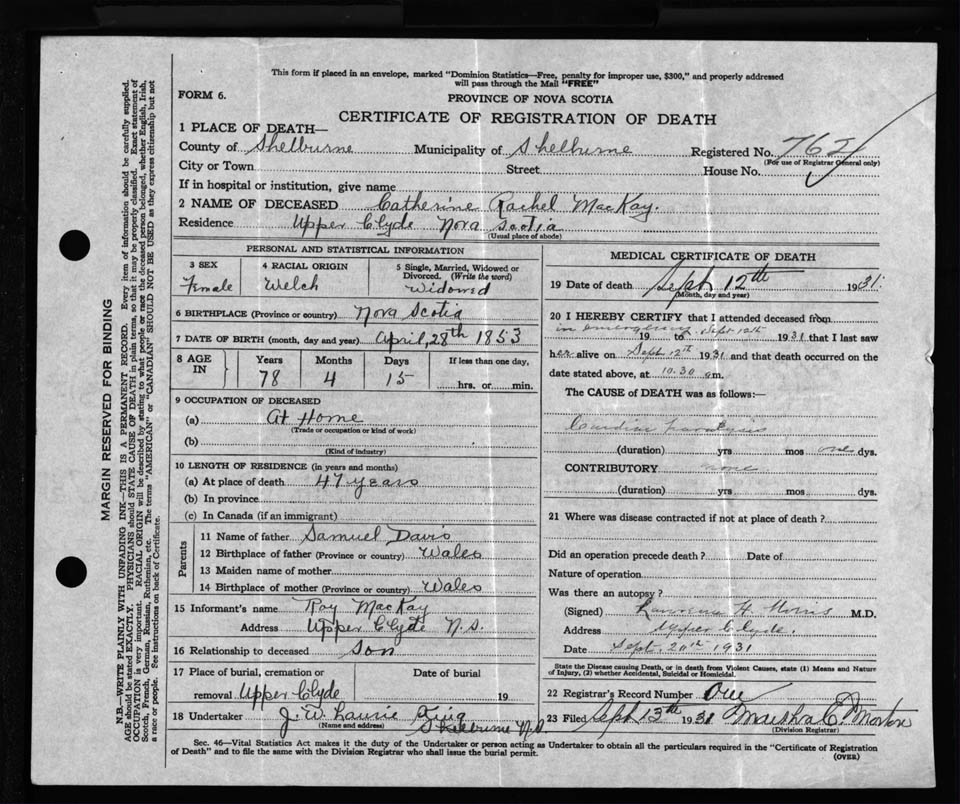 This form if placed in an envelope, marked "Dominion Statistics—Free, penalty for improper use, $300," and properly addressed
will pass through the Mail "FREE"
FORM 6.
PROVINCE OF NOVA SCOTIA
CERTIFICATE OF REGISTRATION OF DEATH
1 PLACE OF DEATH—
County of Shelburne Municipality of Shelburne Registered No. 762
(For use of Registrar General only)
City or Town Street House No.
If in hospital or institution, give name
2 NAME OF DECEASED Catherine Rachel MacKay.
Residence Upper Clyde Nova Scotia
(Usual place of abode)
PERSONAL AND STATISTICAL INFORMATION
3 SEX 4 RACIAL ORIGIN 5 Single, Married, Widowed or
Divorced. (Write the word)
Female Welch Widowed
6 BIRTHPLACE (Province or country) Nova Scotia
7 DATE OF BIRTH (month, day and year) April, 28th 1853
8 AGE IN Years Months Days If less than one day,
78 4 15 hrs. or min.
9 OCCUPATION OF DECEASED
(a) At Home
(Trade or occupation or kind of work)
(b)
(Kind of industry)
10 LENGTH OF RESIDENCE (in years and months)
(a) At place of death 47 years
(b) In province
(c) In Canada (if an immigrant)
Parents
11 Name of father Samuel Davis
12 Birthplace of father (Province or country) Wales
13 Maiden name of mother
14 Birthplace of mother (Province or country) Wales
15 Informant's name Roy MacKay
Address Upper Clyde N.S.
16 Relationship to deceased Son
17 Place of burial, cremation or Date of burial
removal Upper Clyde 19
18 Undertaker J. W. Laurie King
(Name and address) Shelburne N.S.
MEDICAL CERTIFICATE OF DEATH
19 Date of death Sept 12th 1931.
(Month, day and year)
20 I HEREBY CERTIFY that I attended deceased from
in emergency 19 to Sept 12th 1931 that I last saw
her alive on Sept 12th 1931 and that death occurred on the
date stated above, at 10.30 m.
The CAUSE of DEATH was as follows:—
Cardiac Paralysis
(duration) yrs mos one dys.
CONTRIBUTORY none
(duration) yrs mos. dys.
21 Where was disease contracted if not at place of death?
Did an operation precede death? Date of
Nature of operation
Was there an autopsy?
(Signed) Lawrence H. Morris M.D.
Address Upper Clyde.
Date Sept. 20th 1931
State the Disease causing Death, or in death from Violent Causes, state (1) Means and Nature
of Injury, (2) whether Accidental, Suicidal or Homicidal.
22 Registrar's Record Number One
23 Filed Sept 13th 1931 E. Morton
(Division Registrar)
Sec. 46—Vital Statistics Act makes it the duty of the Undertaker or person acting as Undertaker to obtain all the particulars required in the "Certificate of Registration
of Death" and to file the same with the Division Registrar who shall issue the burial permit.
(OVER)
MARGIN RESERVED FOR BINDING
N.B.—WRITE PLAINLY WITH UNFADING INK—THIS IS A PERMANENT RECORD. Every item of information should be carefully supplied.
AGE should be stated EXACTLY. PHYSICIANS should STATE CAUSE OF DEATH in plain terms, so that it may be properly classified. Exact statement of
OCCUPATION is very important. RACIAL ORIGIN will be described by stating to what people or race the deceased person belonged, whether English, Irish,
Scotch, French, German, Russian, Ruthenian, etc. The terms "AMERICAN" or "CANADIAN" SHOULD NOT BE USED as they express citizenship but not
a race or people. See instructions on back of Certificate.